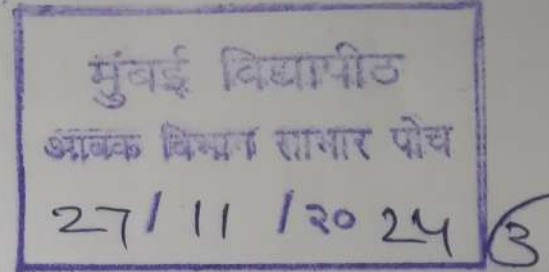 मुंबई विद्यापीठ
आवक विभाग साभार पोच
27/11/२०24
3